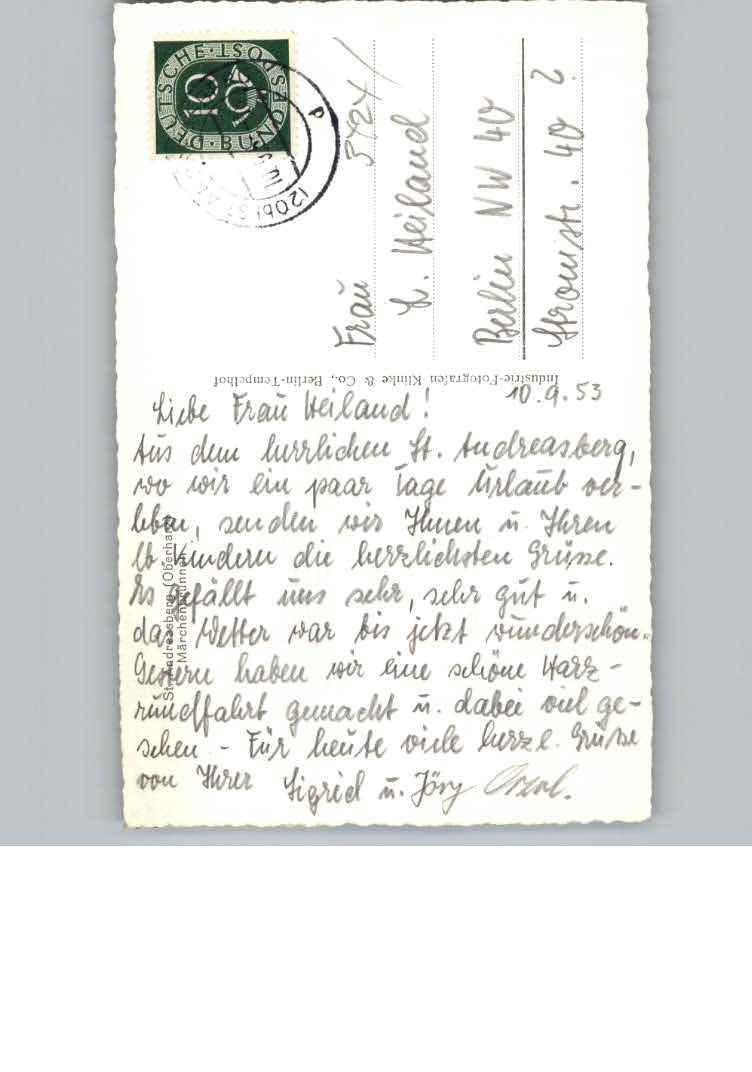 DEUTSCHE BUNDESPOST
10
5424/
Frau
L. Heiland
Berlin NW 40
Stromstr. 40
Industrie-Fotografen Klinke & Co., Berlin-Tempelhof
10.9.53
Liebe Frau Heiland!
Aus dem herrlichen St. Andreasberg,
wo wir ein paar Tage Urlaub ver-
leben, senden wir Ihnen u. Ihren
lb. Kindern die herzlichsten Grüsse.
Es gefällt uns sehr, sehr gut u.
das Wetter war bis jetzt wunderschön.
Gestern haben wir eine schöne Harz-
rundfahrt gemacht u. dabei viel ge-
sehen - Für heute viele herzl. Grüsse
von Ihrer Sigrid u. Jörg
St. Andreasberg (Oberharz)
Märchenbrunnen